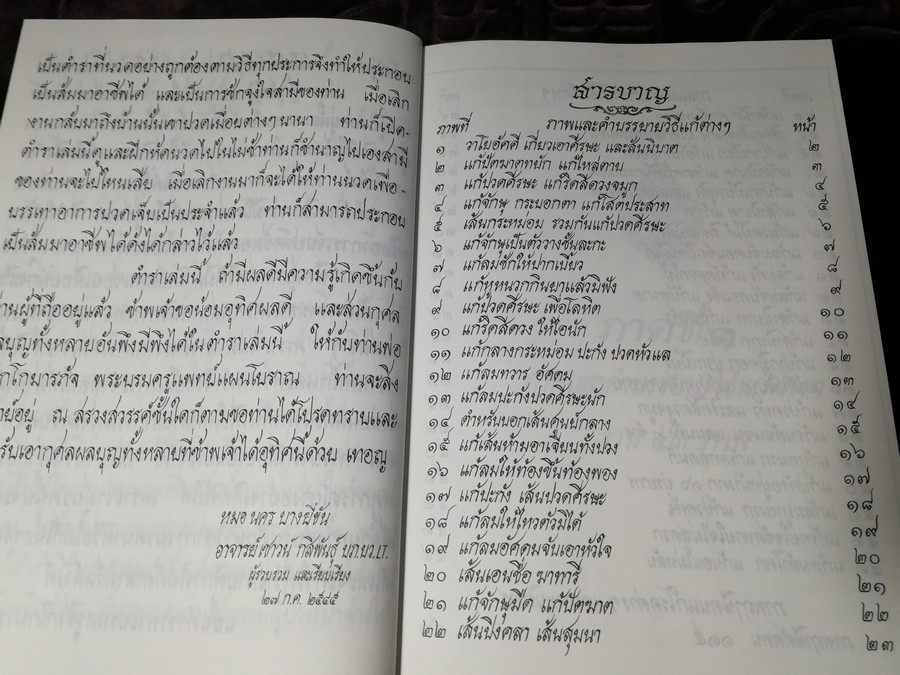 เป็นตำราที่นวดอย่างถูกต้องตามวิธีทุกประการจึงทำให้ประกอบ
เป็นสัมมาอาชีพได้ และเป็นการชักจูงใจสามีของท่าน เมื่อเลิก
งานกลับมาถึงบ้านนั้นเขาปวดเมื่อยต่างๆ นานา ท่านก็เปิด-
ตำราเล่มนี้ดูและฝึกหัดนวดไปในไม่ช้าท่านก็ชำนาญไปเองสามี
ของท่านจะไปไหนเสีย เมื่อเลิกงานมาก็จะได้ให้ท่านนวดเพื่อ-
บรรเทาอาการปวดเจ็บเป็นประจำแล้ว ท่านก็สามารถประกอบ
เป็นสัมมาอาชีพได้ดังได้กล่าวไว้แล้ว
ตำราเล่มนี้ ถ้ามีผลดีมีความรู้เกิดขึ้นกับ
านผู้ที่ถืออยู่แล้ว ข้าพเจ้าขอน้อมอุทิศผลดี และส่วนกุศล
ลบุญทั้งหลายอันพึงมีพึงได้ในตำราเล่มนี้ ให้กับท่านพ่อ
กโกมารภัจ พระบรมครูแพทย์แผนโบราณ ท่านจะสิง
ย์อยู่ ณ สรวงสวรรค์ชั้นใดก็ตามขอท่านได้โปรดทราบและ
รับเอากุศลผลบุญทั้งหลายที่ข้าพเจ้าได้อุทิศนี้ด้วย เทอญ
หมอ นคร บางยี่ขัน
อาจารย์ เชาวน์ กสิพันธุ์ บ.ภ.บ.ว.บ.ผ.
ผู้รวบรวม และเรียบเรียง
๒๗ ก.ค. ๒๕๔๕
สารบาญ
ภาพที่ ภาพและคำบรรยายวิธีแก้ต่างๆ หน้า
๑ วาโยอัคคี เกี่ยวเอาศีรษะ และสันนิบาต ๒
๒ แก้ปัตฆาตหยัก แก้ไหล่ตาย ๓
๓ แก้ปวดศีรษะ แก้ริดสีดวงจมูก ๔
๔ แก้จักษุ กระบอกตา แก้โสตประสาท ๕
๕ เส้นกระหม่อม รวมกันแก้ปวดศีรษะ ๖
๖ แก้จักษุเป็นตัววางชั้นละกะ ๗
๗ แก้ลมชักให้ปากเบี้ยว ๘
๘ แก้หูหนวกกินยาแล้วมิฟัง ๙
๙ แก้ปวดศีรษะ เพื่อโลหิต ๑๐
๑๐ แก้ริดสีดวง ให้ไอนัก ๑๑
๑๑ แก้กลางกระหม่อม ปะกัง ปวดหัวแล ๑๒
๑๒ แก้ลมทวาร อัคตม ๑๓
๑๓ แก้ลมปะกังปวดศีรษะนัก ๑๔
๑๔ ตำหรับบอกเส้นศูนย์กลาง ๑๕
๑๕ แก้เส้นห้ามอาเจียนทั้งปวง ๑๖
๑๖ แก้ลมให้ท้องขึ้นท้องพอง ๑๗
๑๗ แก้ปะกัง เส้นปวดศีรษะ ๑๘
๑๘ แก้ลมให้ไหวตัวมิได้ ๑๙
๑๙ แก้ลมอัคตมจับเอาหัวใจ ๒๐
๒๐ เส้นเอนชื่อ ฆาทารี ๒๑
๒๑ แก้จักษุมืด แก้ปัตฆาต ๒๒
๒๒ เส้นปิงคลา เส้นสุมนา ๒๓